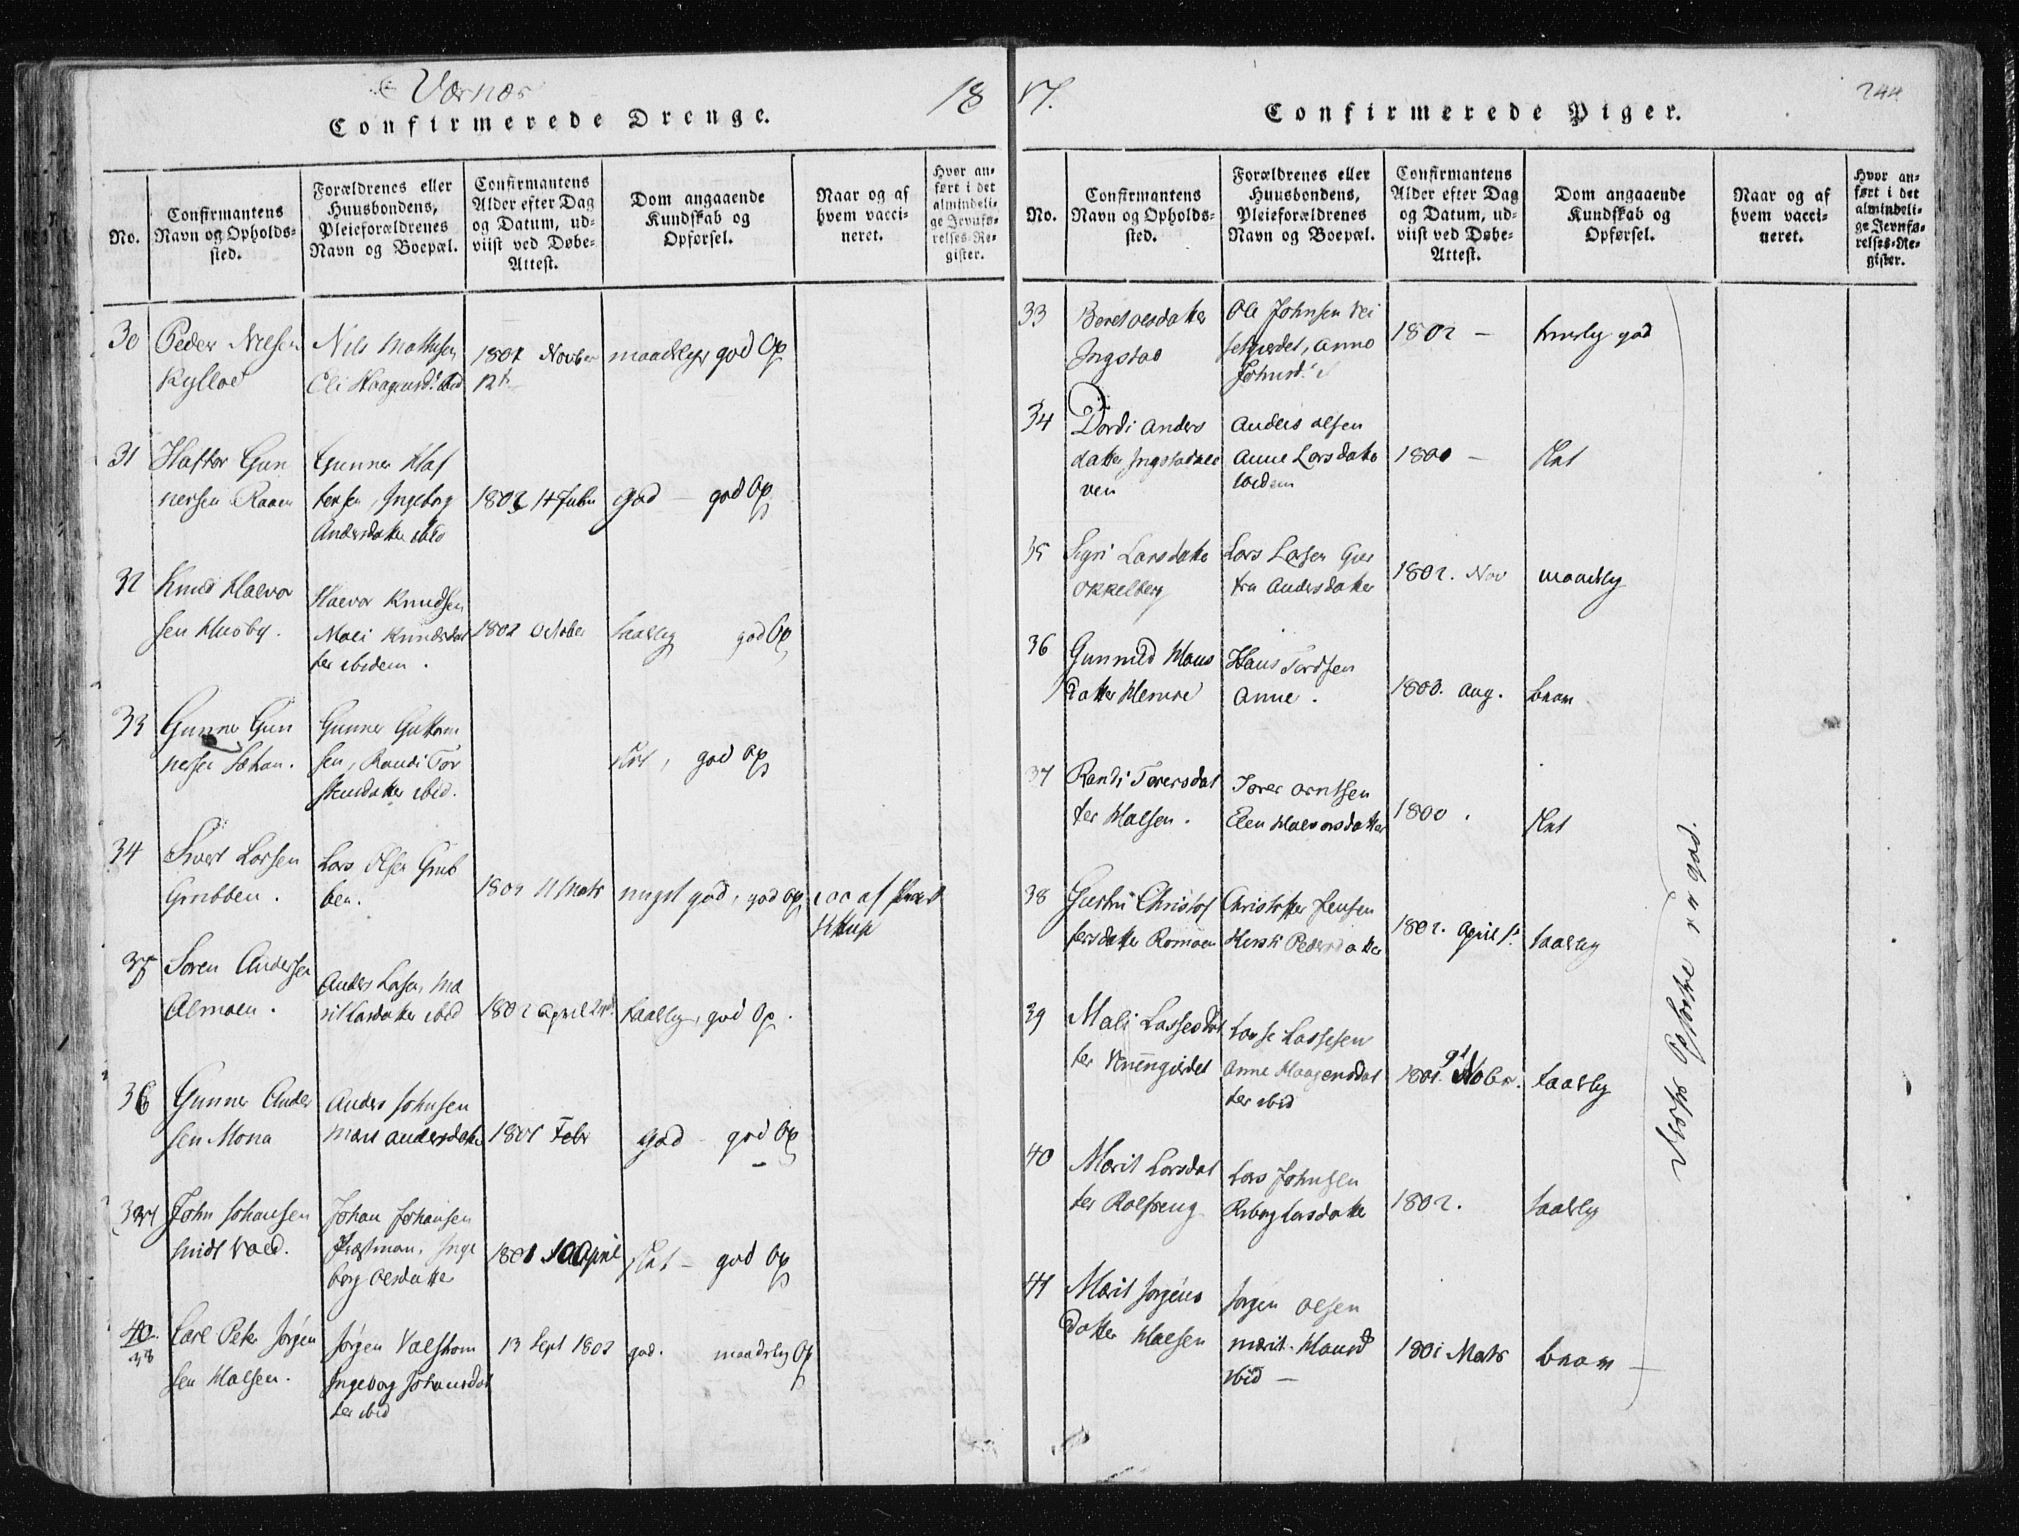 Værnes
18 17.
244
Confirmerede Drenge.
No.
Confirmantens
Navn og Opholds-
sted.
Forældrenes eller
Huusbondens,
Pleieforældrenes
Navn og Boepæl.
Confirmantens
Alder efter Dag
og Datum, ud-
viist ved Døbe-
Attest.
Dom angaaende
Kundskab og
Opførsel.
Naar og af
hvem vacci-
neret.
Hvor an-
ført i det
almindeli-
ge Jevnfø-
relses-Re-
gister.
30
Peder Nilsen
Kylloe
Nils Mathisen
Eli Haagensd. ibid
1801 Novber
12te
maadelig god Op
31
Haftor Gun
nersen Raaen
Gunner Haf
torsen, Ingeborg
Andersdatter ibid
1802
god — god Op
32
Knud Halvor
sen Husby.
Halvor Knudsen
Mali Knudsdat
ter ibidem.
1802 October
taalelig god Op
33
Gunner Gun
nersen
Gunner Guttorm
sen, Randi Tor
stensdatter ibid.
slet, god Op
34
Sivert Larsen
Grubben.
Lars Olsen Grub
ben.
11 Marts
meget god, god Op
af
35
Søren Andersen
Almoen.
Anders Larsen, Ma
rit Larsdatter ibid
1802 April
taalelig, god Op.
36
Gunner Ander
sen Mona
Anders Johnsen
Marit Andersdatter
1801 Febr
god — god Op
37
John Johansen
Johan Johansen
Inge
borg Olsdatter
1801 10 April
slet — god Op
40
38
Carl Peter Jørgen
sen Halsen.
Jørgen Valstrom
Ingeborg Johansdat
ter ibid
13 Sept 1802
god. maadelig Op
Confirmerede Piger.
No.
Confirmantens
Navn og Opholds-
sted.
Forældrenes eller
Huusbondens,
Pleieforældrenes
Navn og Boepæl.
Confirmantens
Alder efter Dag
og Datum, ud-
viist ved Døbe-
Attest.
Dom angaaende
Kundskab og
Opførsel.
Naar og af
hvem vacci-
neret.
Hvor an-
ført i det
almindeli-
ge Jevnfø-
relses-Re-
gister.
33
Beret Olsdatter
Ingstad
Ole Johnsen
Anne
Johnsd.
1802 —
god
34
Dordi Anders
datter
Anders Olsen
Anne Larsdatter
ibidem
1800 —
slet
35
Sigri Larsdatter
Okkelberg
Lars Larsen Gjer
tru Andersdatter
1802. Nov
maadelig
36
Gunnild Hans
datter Hemre
Hans Tordsen
Anne.
1803. Aug.
brav
37
Randi Torersdat
ter Halsen.
Torer Arntsen
Elen Halvorsdatter
1800.
slet
38
Gjertru Christof
fersdatter Romoen
Christoffer Jensen
Kirsti Pedersdatter
1802. April
taalelig
39
Mali Lassesdat
ter
Lasse Lassesen
Anne Haagensdat
ter ibid
1801. 9de Nobr.
taalelig
40
Marit Larsdat
ter Rolfseng
Lars Johnsen
Larsdatter
1802.
taalelig
41
Marit Jørgens
datter Halsen
Jørgen Olsen
Marit Hansd
ibid —
1801 Marts
brav —
Opførsel var god.